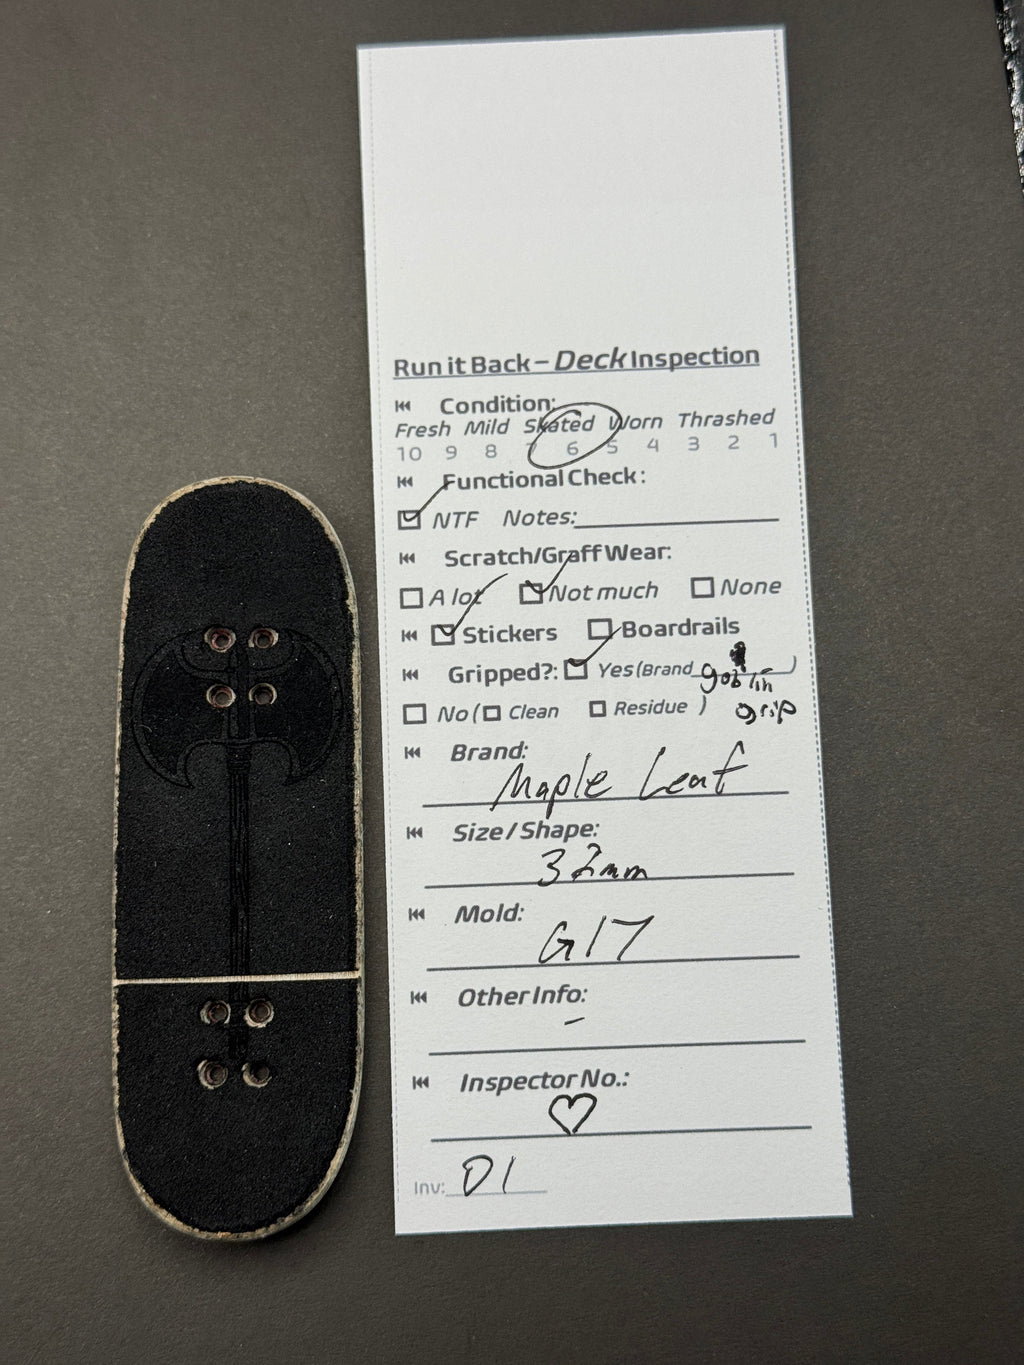 Run it Back – Deck Inspection
Condition:
Fresh Mild Skated Worn Thrashed
10 9 8 7 6 5 4 3 2 1
Functional Check:
NTF Notes:
Scratch/Graff Wear:
A lot Not much None
Stickers Boardrails
Gripped?: Yes (Brand goblin )
No ( Clean Residue ) grip
Brand:
Maple Leaf
Size / Shape:
32mm
Mold:
G17
Other Info:
–
Inspector No.:
♡
Inv: 01